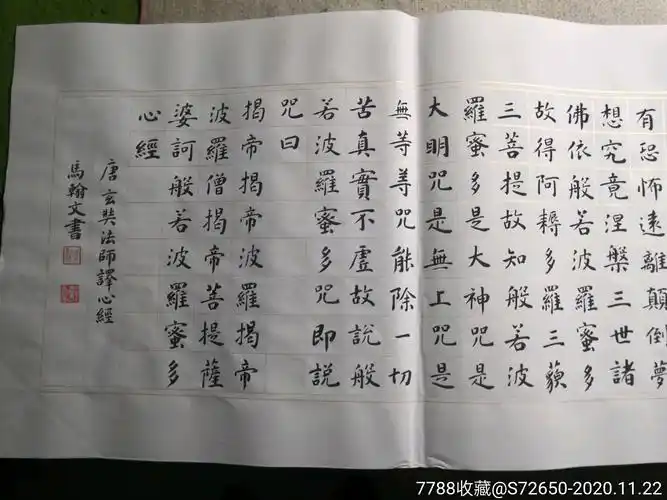 有恐怖遠離顛倒夢
想究竟涅槃三世諸
佛依般若波羅蜜多
故得阿耨多羅三藐
三菩提故知般若波
羅蜜多是大神咒是
大明咒是無上咒是
無等等咒能除一切
苦真實不虛故說般
若波羅蜜多咒即説
咒曰
揭帝揭帝波羅揭帝
波羅僧揭帝菩提薩
婆訶般若波羅蜜多
心經
唐玄奘法師譯心經
馬翰文書
7788收藏@S72650-2020.11.22